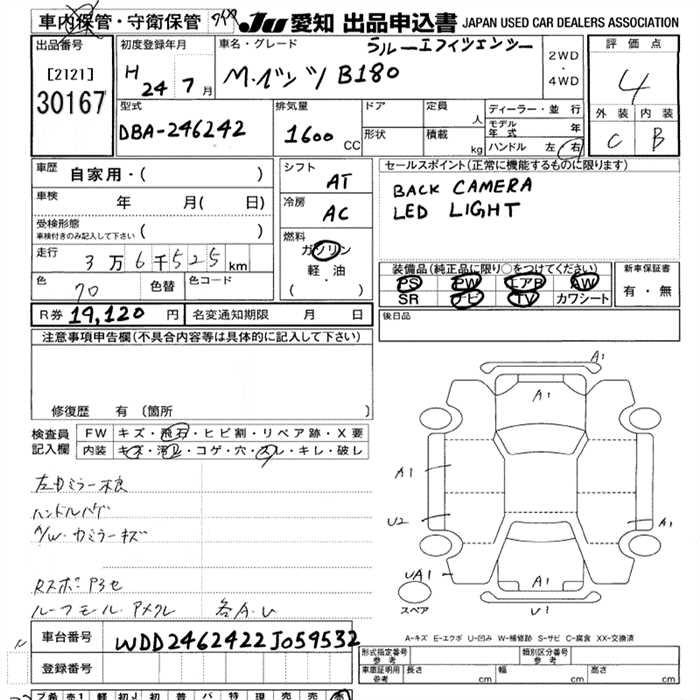 車内保管・守衛保管
JU 愛知 出品申込書 JAPAN USED CAR DEALERS ASSOCIATION
出品番号
[2121]
30167
初度登録年月
H 24 7月
車名・グレード
ブルーエフィシェンシー
M・ベンツ B180
2WD
・
4WD
評価点
4
外装 内装
C B
型式
DBA-246242
排気量
1600 CC
ドア
形状
定員 人
積載 kg
ディーラー・並行
モデル年式 年
ハンドル 左・右
車歴
自家用・( )
車検 年 月( 日)
受検形態
車検付きのみ記入して下さい ( )
走行 3万6千525 km
色 70 色替 色コード
シフト
AT
冷房
AC
燃料
ガソリン
軽油
( ・ )
セールスポイント(正常に機能するものに限ります)
BACK CAMERA
LED LIGHT
装備品(純正品に限り○をつけてください)
PS PW エアB AW
SR ナビ TV カワシート
新車保証書
有・無
R券 19,120 円 名変通知期限 月 日
後日品
注意事項申告欄(不具合内容等は具体的に記入して下さい)
修復歴 有 〔箇所 〕
検査員記入欄
FW キズ・飛石・ヒビ割・リペア跡・X要
内装 キズ・汚レ・コゲ・穴・スレ・キレ・破レ
左ドミラー不良
ハンドルハゲ
A/W・カミラーキズ
Rスポ・P3セ
ルーフモール・アメクレ 各A・U
A1
A1
A1
U2
A1
UA1
A1
U1
スペア
A-キズ E-エクボ U-凹み W-補修跡 S-サビ C-腐食 XX-交換済
車台番号 WDD2462422J059532
登録番号
形式指定番号
参考
類別区分番号
参考
車庫証明用
参考
長さ cm 幅 cm 高さ cm